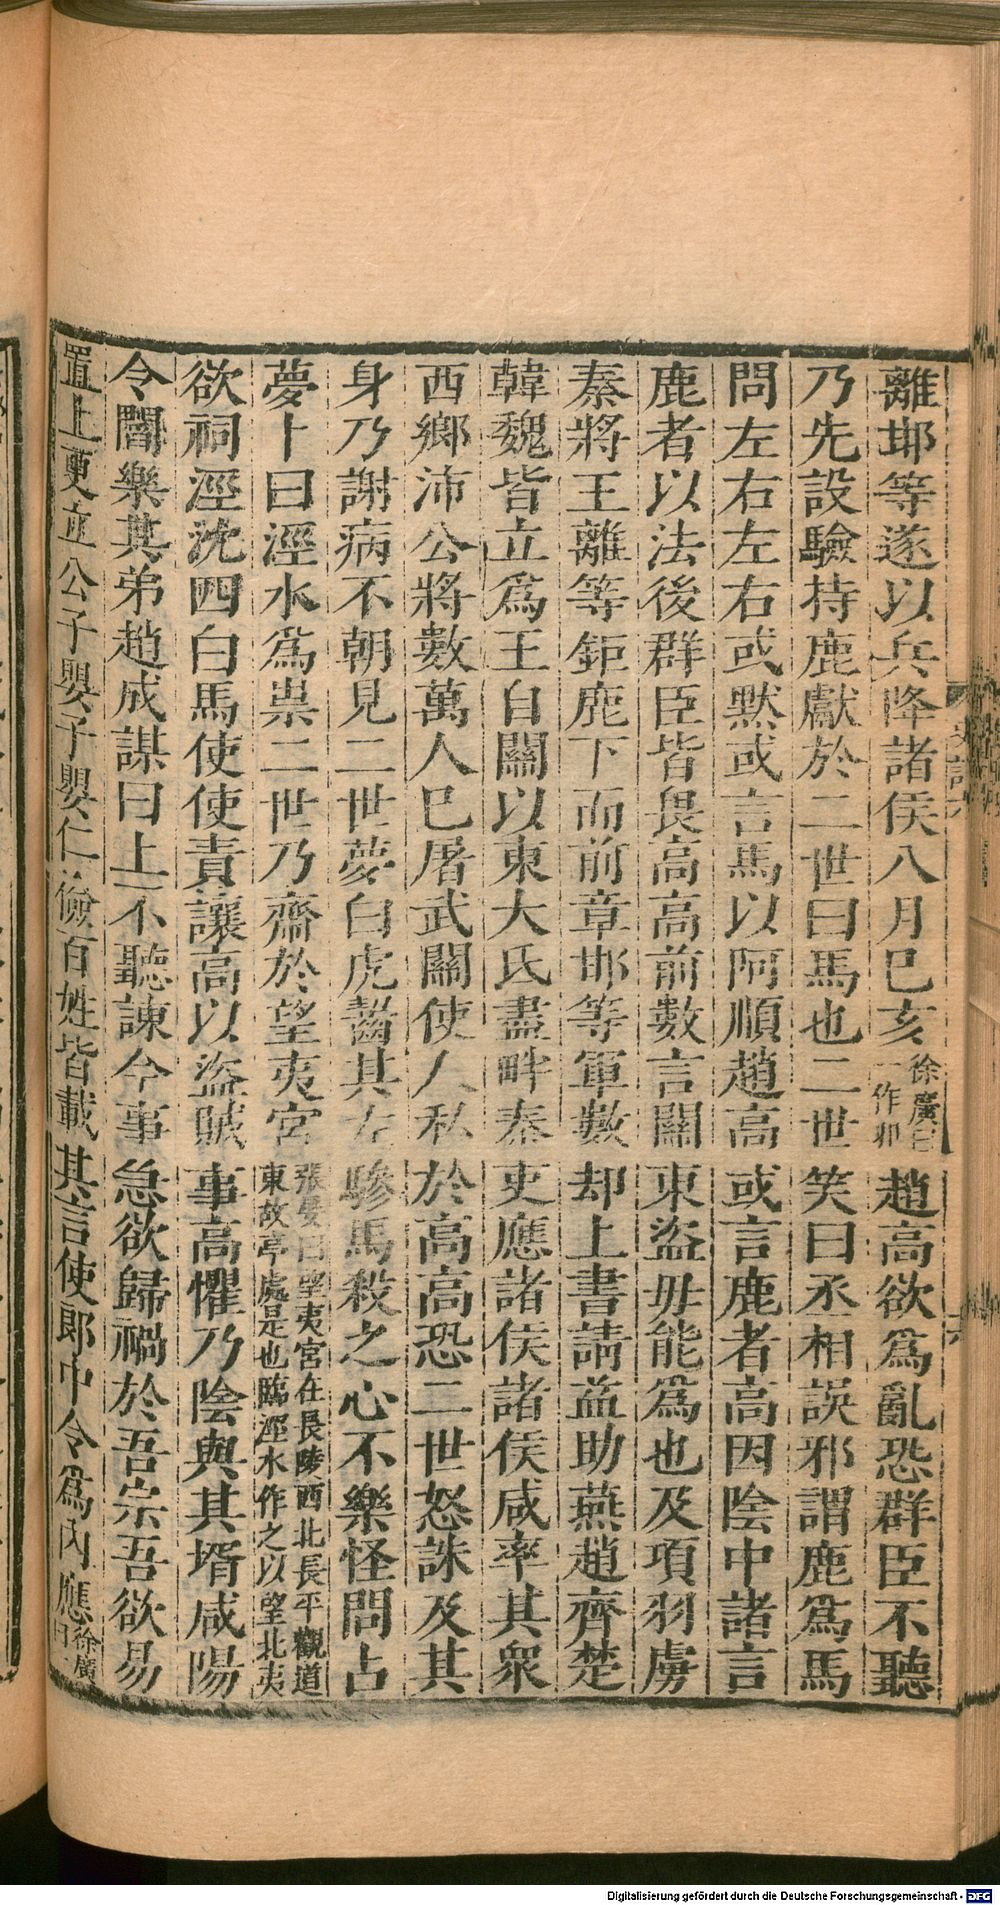 離邯等遂以兵降諸侯八月巳亥徐廣曰一作卯趙高欲爲亂恐群臣不聽
乃先設驗持鹿獻於二世曰馬也二世笑曰丞相誤邪謂鹿爲馬
問左右左右或默或言馬以阿順趙高或言鹿者高因陰中諸言
鹿者以法後群臣皆畏高高前數言關東盜毋能爲也及項羽虜
秦將王離等鉅鹿下而前章邯等軍數却上書請益助燕趙齊楚
韓魏皆立爲王自關以東大氏盡畔秦吏應諸侯諸侯咸率其衆
西鄉沛公將數萬人巳屠武關使人私於高高恐二世怒誅及其
身乃謝病不朝見二世夢白虎齧其左驂馬殺之心不樂怪問占
夢卜曰涇水爲祟二世乃齋於望夷宮張晏曰望夷宮在長陵西北長平觀道東故亭處是也臨涇水作之以望北夷
欲祠涇沈四白馬使使責讓高以盜賊事高懼乃陰與其壻咸陽
令閻樂其弟趙成謀曰上不聽諫今事急欲歸禍於吾宗吾欲易
置上更立公子嬰子嬰仁儉百姓皆載其言使郎中令爲內應徐廣曰一
史記六
六
Digitalisierung gefördert durch die Deutsche Forschungsgemeinschaft - DFG